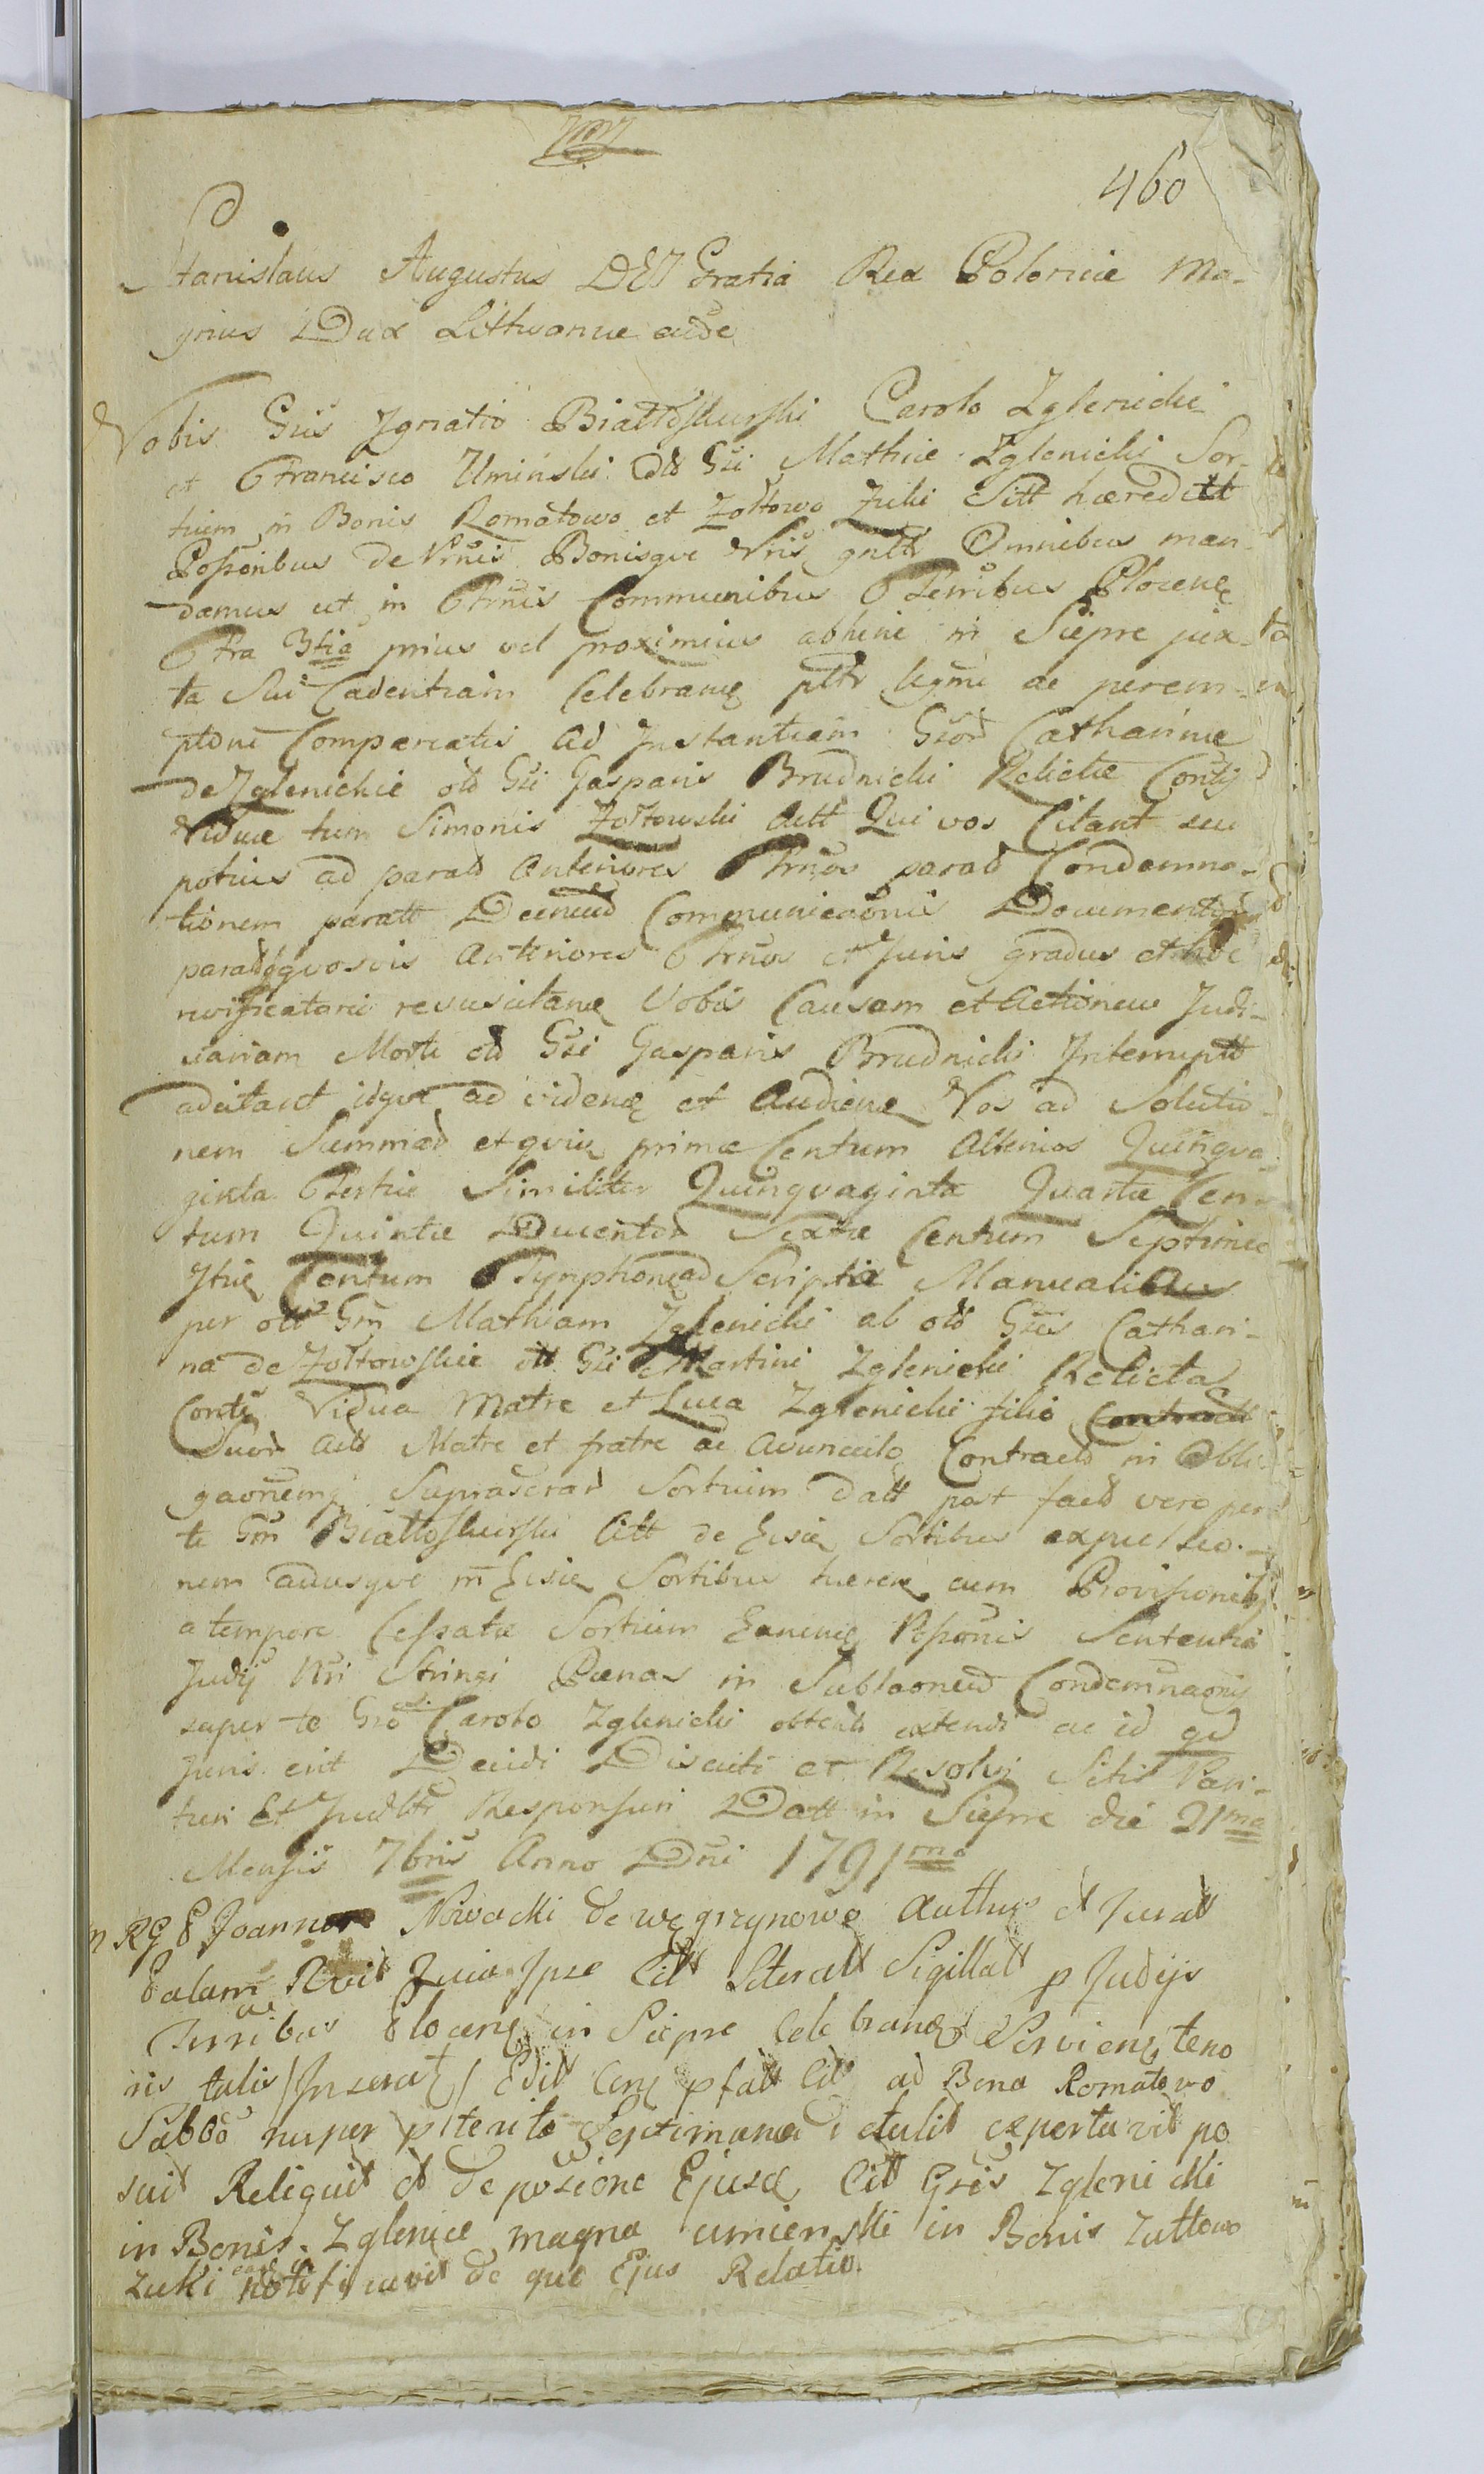 460
Stanislaus Augustus DEI Gratia Rex Poloniæ Ma-
gnus Dux Lithvaniæ &
Vobis Gsis Ignatio Białłoskurski Carolo Zglenicki
et Francisco Uminski olb Gsi Mathiæ Zglenicki Sor-
tium in Bonis Romatowo et Zołtowo Zuki Citt hæreditt
Possoribus de Psnis Bonisque Vris gnltr Omnibus man-
damus ut in Trnis Communibus Terribus Plocen
Fra 3tia prius vel proximius abhinc in Siepre jux-
ta Sui Cadentiam Celebran pltr lgme ac perem-
ptorie Compareatis Ad Instantiam Gsor Catharinæ
de Zglenickie olb Gsi Gasparis Brudnicki Relictæ Contj
Viduæ tum Simonis Zołtowski Actt Qui vos Citant seu
potius ad parat Anteriores Trnos parat Condemna-
tionem paratt Communicaonis Documentor
parat quosvis Anteriores Trnos et Juris gradus et hoc
resuscitan Vobis Causam et Actionem Judi-
ciariam Morte olb Gsi Gasparis Brudnicki Interruptt
adcitant idque ad viden et Audien Vos ad Solutio-
nem Summar primæ Centum Alterius Quinqua-
ginta Tertiæ Similiter Quinquaginta Quartæ Cen-
tum Quintæ Ducentor Sextæ Centum Septimæ
Centum Tymphonear Scriptis Manualibus
per olb Gsm Mathiam Zglenicki ab olb Gsis Cathari-
na de Zołtowskie olb Gsi Martini Zglenicki Relicta
Contj Vidua Matre et Luca Zglenicki filio
Suor Actt Matre et fratre ac Avunculo Contract in Obli-
gaonemq Suprascrar Sortium datt post fact vero per
te Gsm Białłoskurski Citt de Sortibus expulsio-
nem adusque in Sortibus hæren cum Provisionibj
a tempore Cessatæ Sortium Possonis Sententia
Judij Nri Stringi Pænas in Condemnaonis
super te Gso Carolo Zglenicki obtent extendi ac id qd
Juris erit Decidi Discuti et Resolvi Sitis Pari-
turi Et Judltr Responsuri Datt in Siepre die 21ma
Mensis 7bris Anno Dni 1791mo
Nowacki de Węgrzynowo Authus et Juratt
Palam Rvit Quia Ipse Citt Literatt Sigillatt p Judijs
Terribus Plocen in Siepre Celebran Servien teno
ris talis /Inserat/ Edit ad Bona Romatowo
Sabbo nuper pterito Septimana detulit exportavit po
suit Reliquit et de posicione Ejusd Citt Gsis Zglenicki
in Bonis Zglenice magna umienski in Bonis Zułtowo
Zuki notificavit de quo Ejus Relatio.